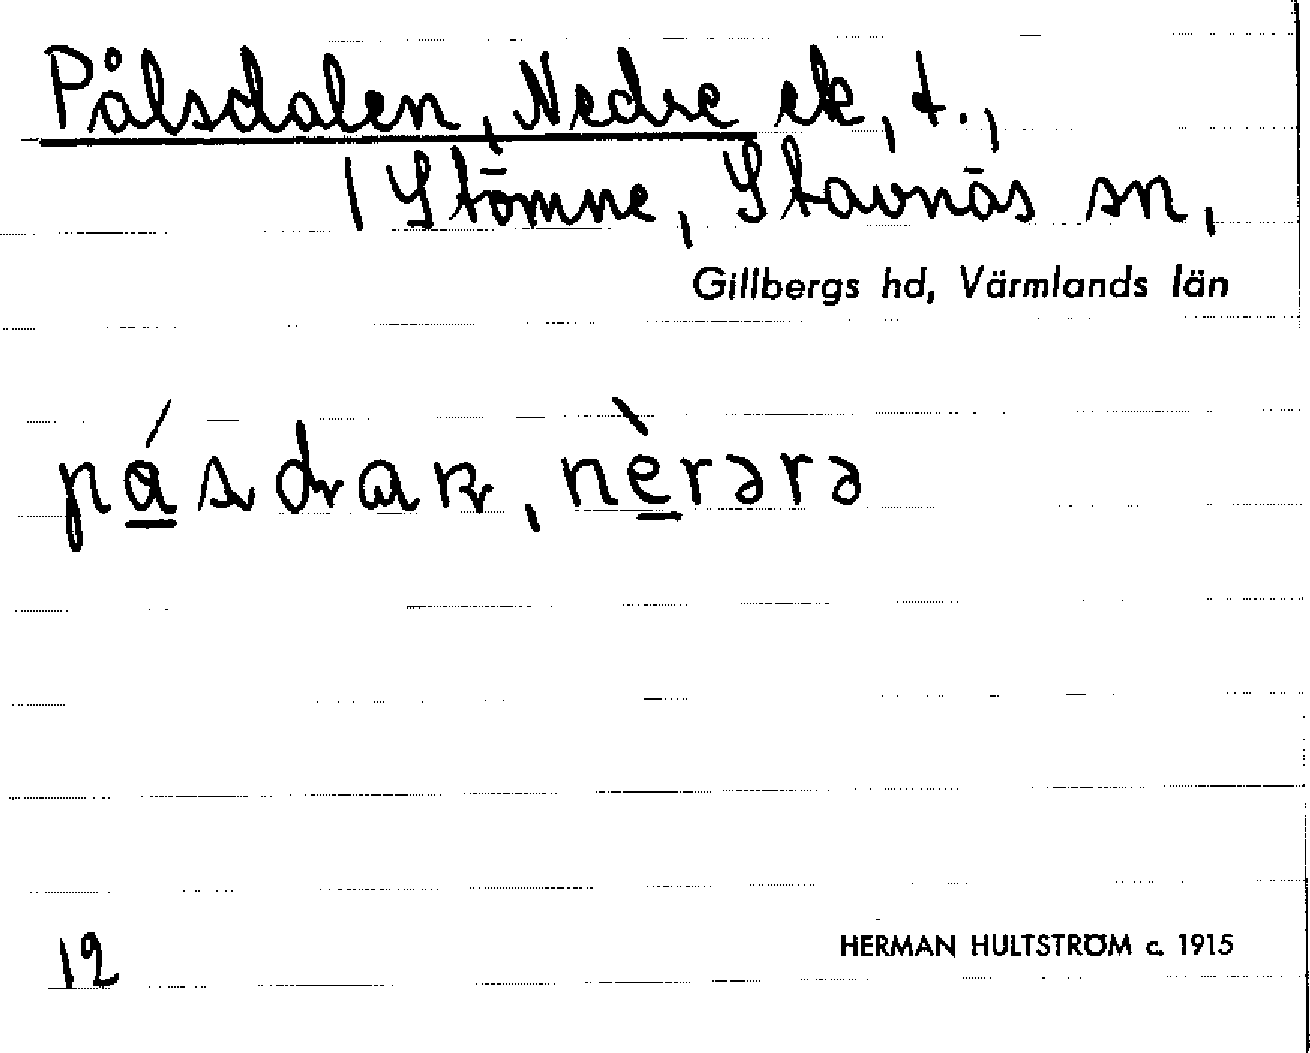 Pålsdalen, Nedre ek, t.,
/ Stömne, Stavnäs sn,
Gillbergs hd, Värmlands län
nèrərə
12 HERMAN HULTSTRÖM c. 1915